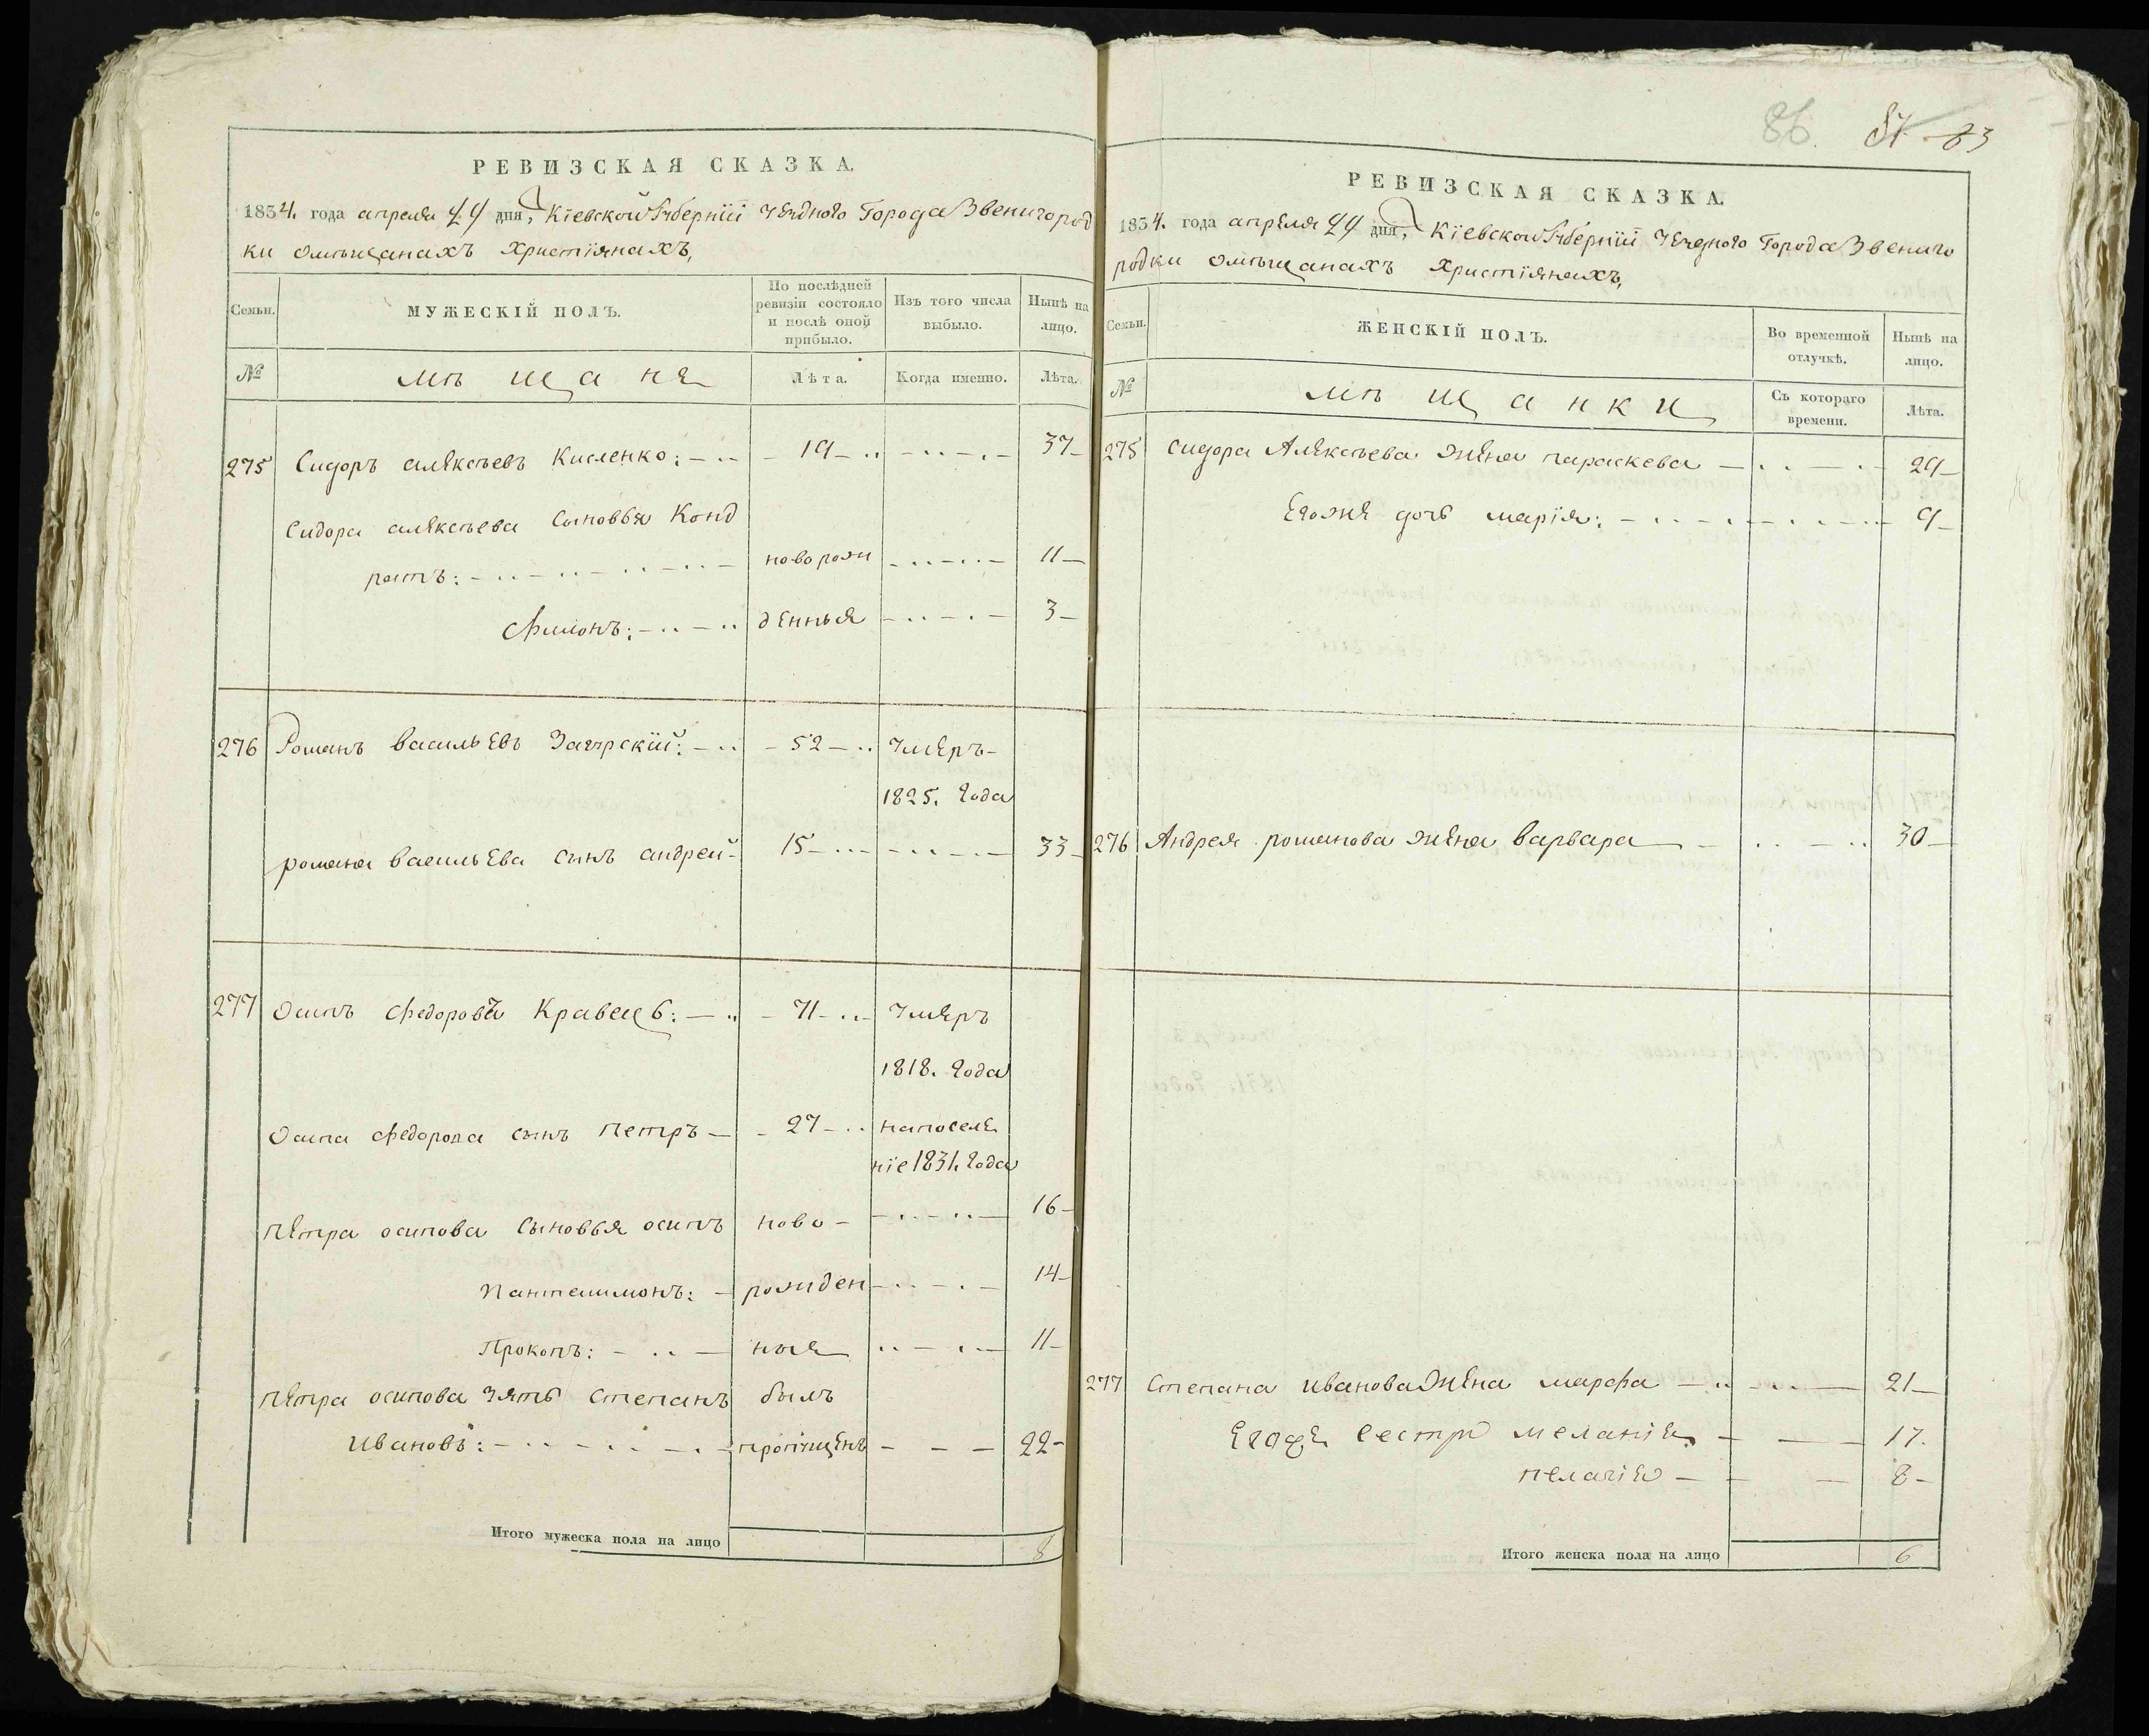 86. 83
РЕВИЗСКАЯ СКАЗКА.
1834. года апреля 29 дня, Кїевской Губернїи Уездного Города Звенигород
ки омѣщанахъ христїянахъ,
Семьи. МУЖЕСКІЙ ПОЛЪ. По послѣдней ревизіи состояло и послѣ оной прибыло. Изъ того числа выбыло. Нынѣ на лицо.
№ мѣщане Лѣта. Когда именно. Лѣта.
275 Сидоръ алексѣевъ Кисленко: 19 37
Сидора алексѣева Сыновья Конд
ратъ: новорож 11
Филонъ: денныя 3
276 Романъ васильевъ Загурскїй: 52 Умеръ
1825. Года
романа васильева сынъ андрей 15 33
277 Осипъ Федоровъ Кравецъ: 71 Умеръ
1818. Года
Осипа Федорова сынъ петръ 27 напоселе
нїе 1831. Года
петра осипова Сыновья осипъ ново 16
Пантелимонъ: рожден 14
Прокопъ: ныя 11
петра осипова зять степанъ былъ
Ивановъ: пропущенъ 22
Итого мужеска пола на лицо 8
РЕВИЗСКАЯ СКАЗКА.
1834. года апреля 29 дня, Кїевской Губернїи Уездного Города Звениго
родки омѣщанахъ христїянахъ,
Семьи. ЖЕНСКІЙ ПОЛЪ. Во временной отлучкѣ. Нынѣ на лицо.
№ мѣщанки Съ котораго времени. Лѣта.
275 Сидора Алексѣева жена параскева 29
Егоже дочь марїя: 9
276 Андрея романова жена варвара 30
277 Степана иванова жена марфа 21
Егоже сестры меланїя 17.
пелагїя 8
Итого женска пола на лицо 6